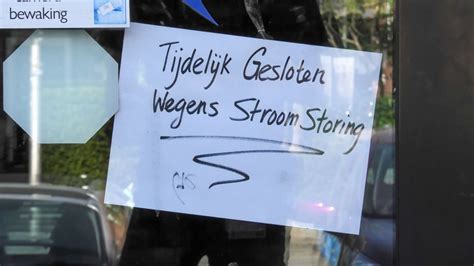 bewaking
Tijdelijk Gesloten
Wegens Stroom Storing